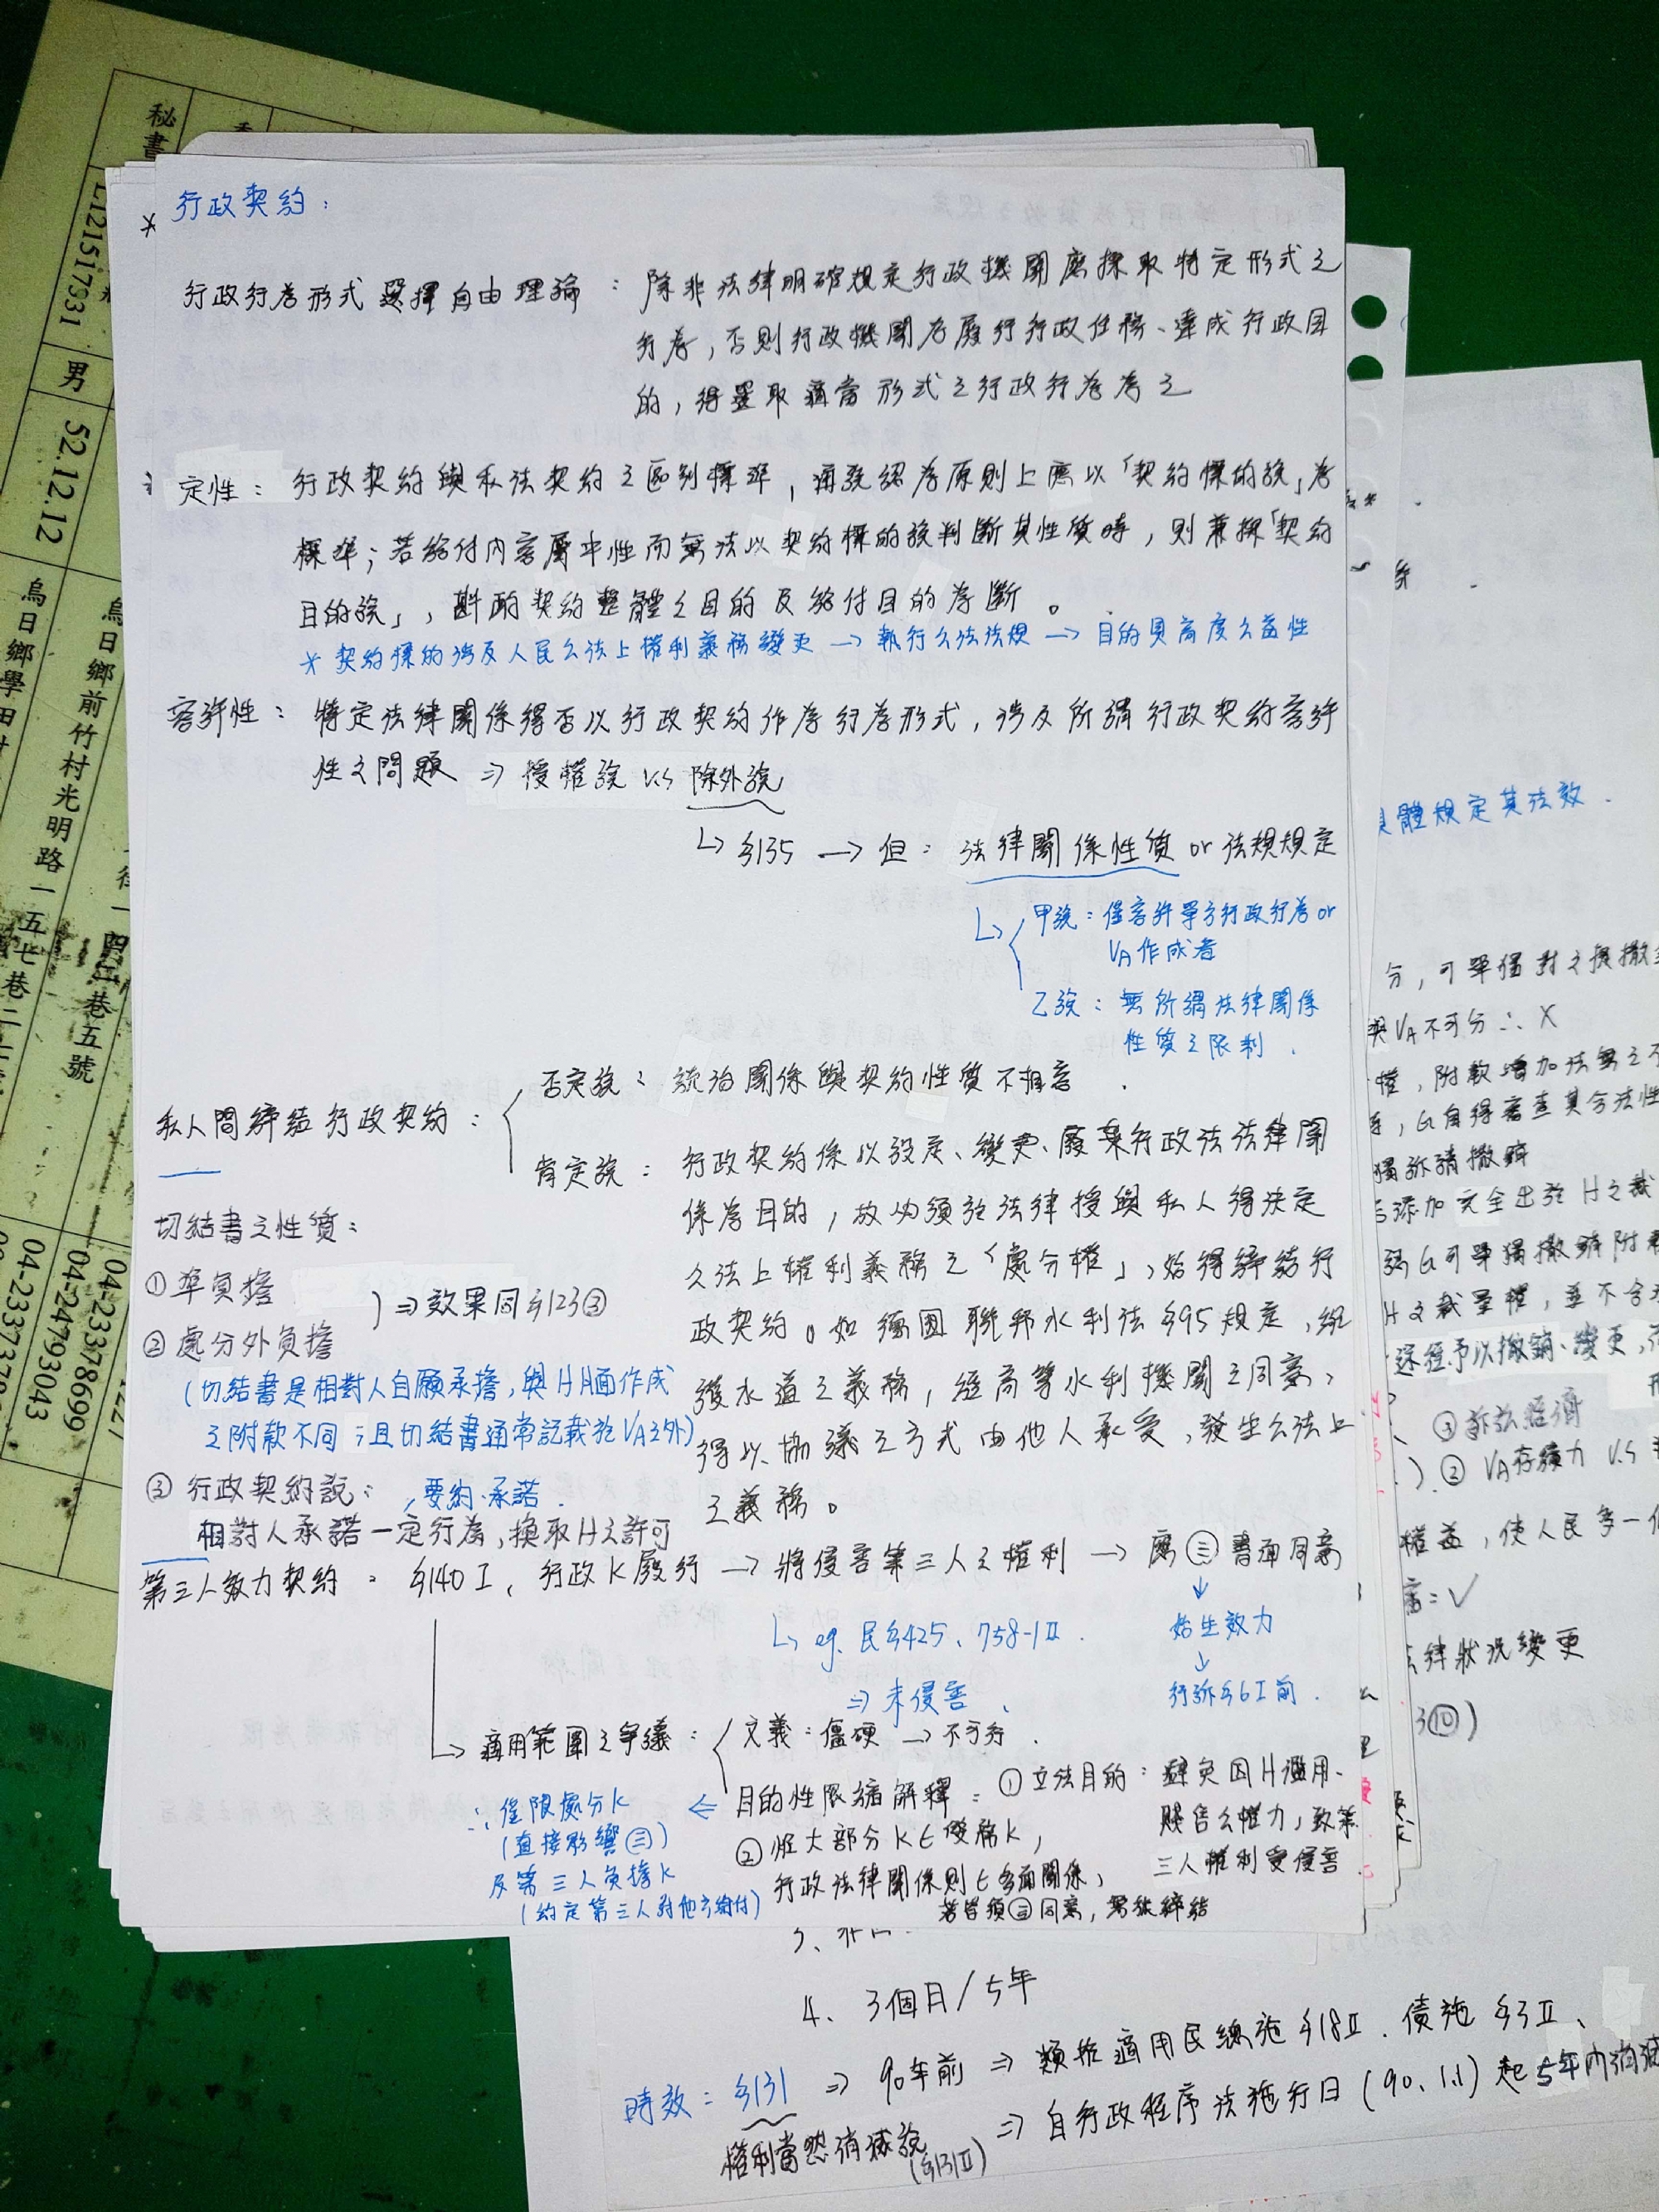 行政契約：
行政行為形式選擇自由理論：除非法律明確規定行政機關應採取特定形式之
行為，否則行政機關為履行行政任務、達成行政目
的，得選取適當形式之行政行為為之
定性：行政契約與私法契約之區別標準，通說認為原則上應以「契約標的說」為
標準；若給付內容屬中性而無法以契約標的說判斷其性質時，則兼採「契約
目的說」，斟酌契約整體之目的及給付目的為斷。
* 契約標的涉及人民公法上權利義務變更 → 執行公法法規 → 目的具高度公益性
容許性：特定法律關係得否以行政契約作為行為形式，涉及所謂行政契約容許
性之問題 ⇒ 授權說 v.s 除外說
↳ §135 → 但：法律關係性質 or 法規規定
↳ 甲說：僅容許單方行政行為or
VA作成者
乙說：無所謂法律關係
性質之限制.
私人間締結行政契約：
否定說：統治關係與契約性質不相容.
肯定說：行政契約係以設定、變更、廢棄行政法法律關
係為目的，故必須於法律授與私人得決定
公法上權利義務之「處分權」，始得締結行
政契約。如德國聯邦水利法§95規定，維
護水道之義務，經高等水利機關之同意，
得以協議之方式由他人承受，發生公法上
之義務。
切結書之性質：
① 準負擔
② 處分外負擔
) ⇒ 效果同§123③
(切結書是相對人自願承擔，與H片面作成
之附款不同；且切結書通常記載於VA之外)
③ 行政契約說：要約、承諾.
相對人承諾一定行為，換取H之許可
第三人效力契約：§140 I、行政K履行 → 將侵害第三人之權利 → 應㊂書面同意
↓
始生效力
↓
行訴§6I前.
↳ eg. 民§425、758-1 II.
⇒ 未侵害、
↳ 適用範圍之爭議：
文義：僵硬 → 不可行.
目的性限縮解釋：① 立法目的：避免因H濫用、
賤售公權力，致第
三人權利受侵害.
② 惟大部分K∈債務K，
行政法律關係則∈多面關係，
若皆須㊂同意，男 締結
⇐ ∴僅限處分K
(直接影響㊂)
及第三人負擔K
(約定第三人對他方給付)
4、3個月/5年
時效：§131 ⇒ 90年前 ⇒ 類推適用民總施§18II、債施§3II、
權利當然消滅說
(§131II)
⇒ 自行政程序法施行日(90.1.1)起5年內消滅
具體規定其法效.
分，可單獨對之提撤
與VA不可分 ∴ X
權，附款增加法無之不
，G自得審查其合法性
獨訴請撤銷
添加完全出於H之裁
G可單獨撤銷附
H之裁量權，並不含
逕予以撤銷、變更，
③ 訴訟經濟
② VA存續力 v.s
權益，使人民多一
✓
法律狀況變更
⑩)
秘書
L121517331
男
52.12.12
烏日鄉前竹村光明路一五七巷二
烏日鄉學田
巷五號
04-23378699
04-24793043
04-2337378